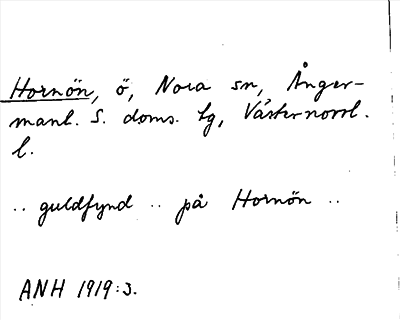 Hornön, ö, Nora sn, Ånger-
manl. S. doms. lg, Västernorrl.
l.
.. guldfynd .. på Hornön ..
ANH 1919:3.